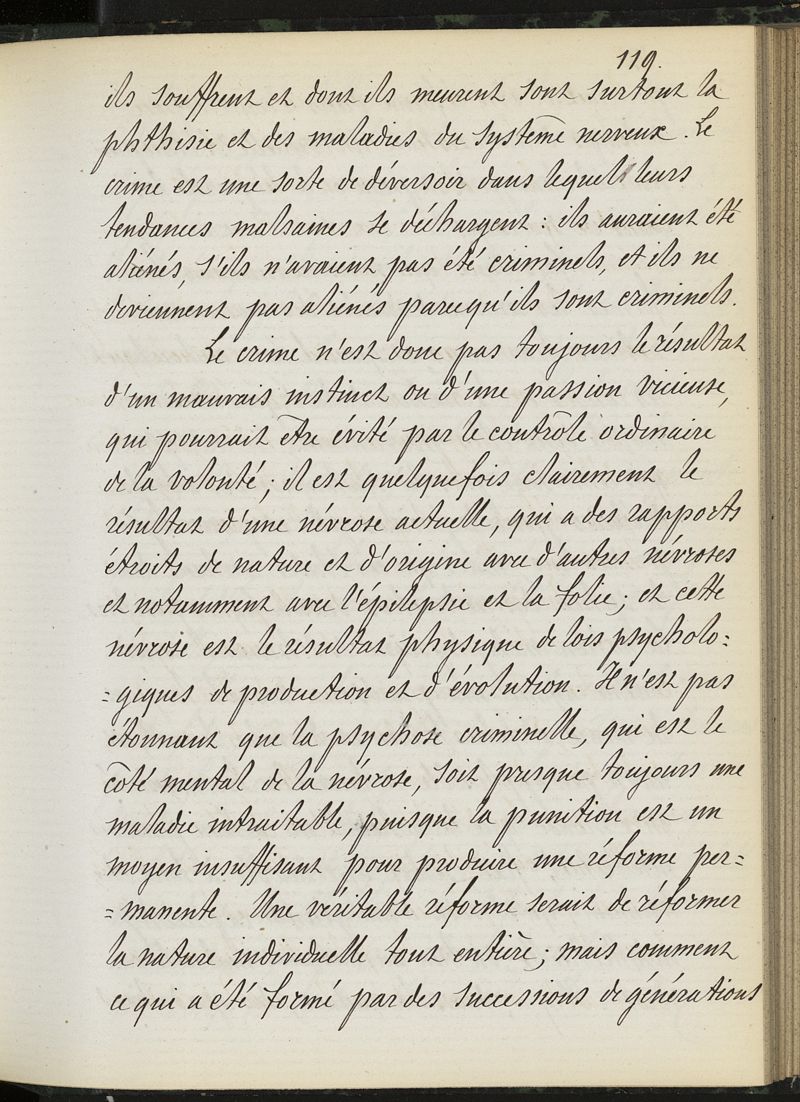 119.
ils souffrent et dont ils meurent sont surtout la
phthisie et des maladies du système nerveux. Le
crime est une sorte de déversoir dans lequel leurs
tendances malsaines se déchargent : ils auraient été
aliénés, s'ils n'avaient pas été criminels, et ils ne
deviennent pas aliénés parcequ'ils sont criminels.
Le crime n'est donc pas toujours le résultat
d'un mauvais instinct ou d'une passion vicieuse,
qui pourrait être évité par le contrôle ordinaire
de la volonté ; il est quelquefois clairement le
résultat d'une névrose actuelle, qui a des rapports
étroits de nature et d'origine avec d'autres névroses
et notamment avec l'épilepsie et la folie ; et cette
névrose est le résultat physique de lois psycholo=
=giques de production et d'évolution. Il n'est pas
étonnant que la psychose criminelle, qui est le
côté mental de la névrose, soit presque toujours une
maladie intraitable, puisque la punition est un
moyen insuffisant pour produire une réforme per=
=manente. Une véritable réforme serait de réformer
la nature individuelle tout entière ; mais comment
ce qui a été formé par des successions de générations